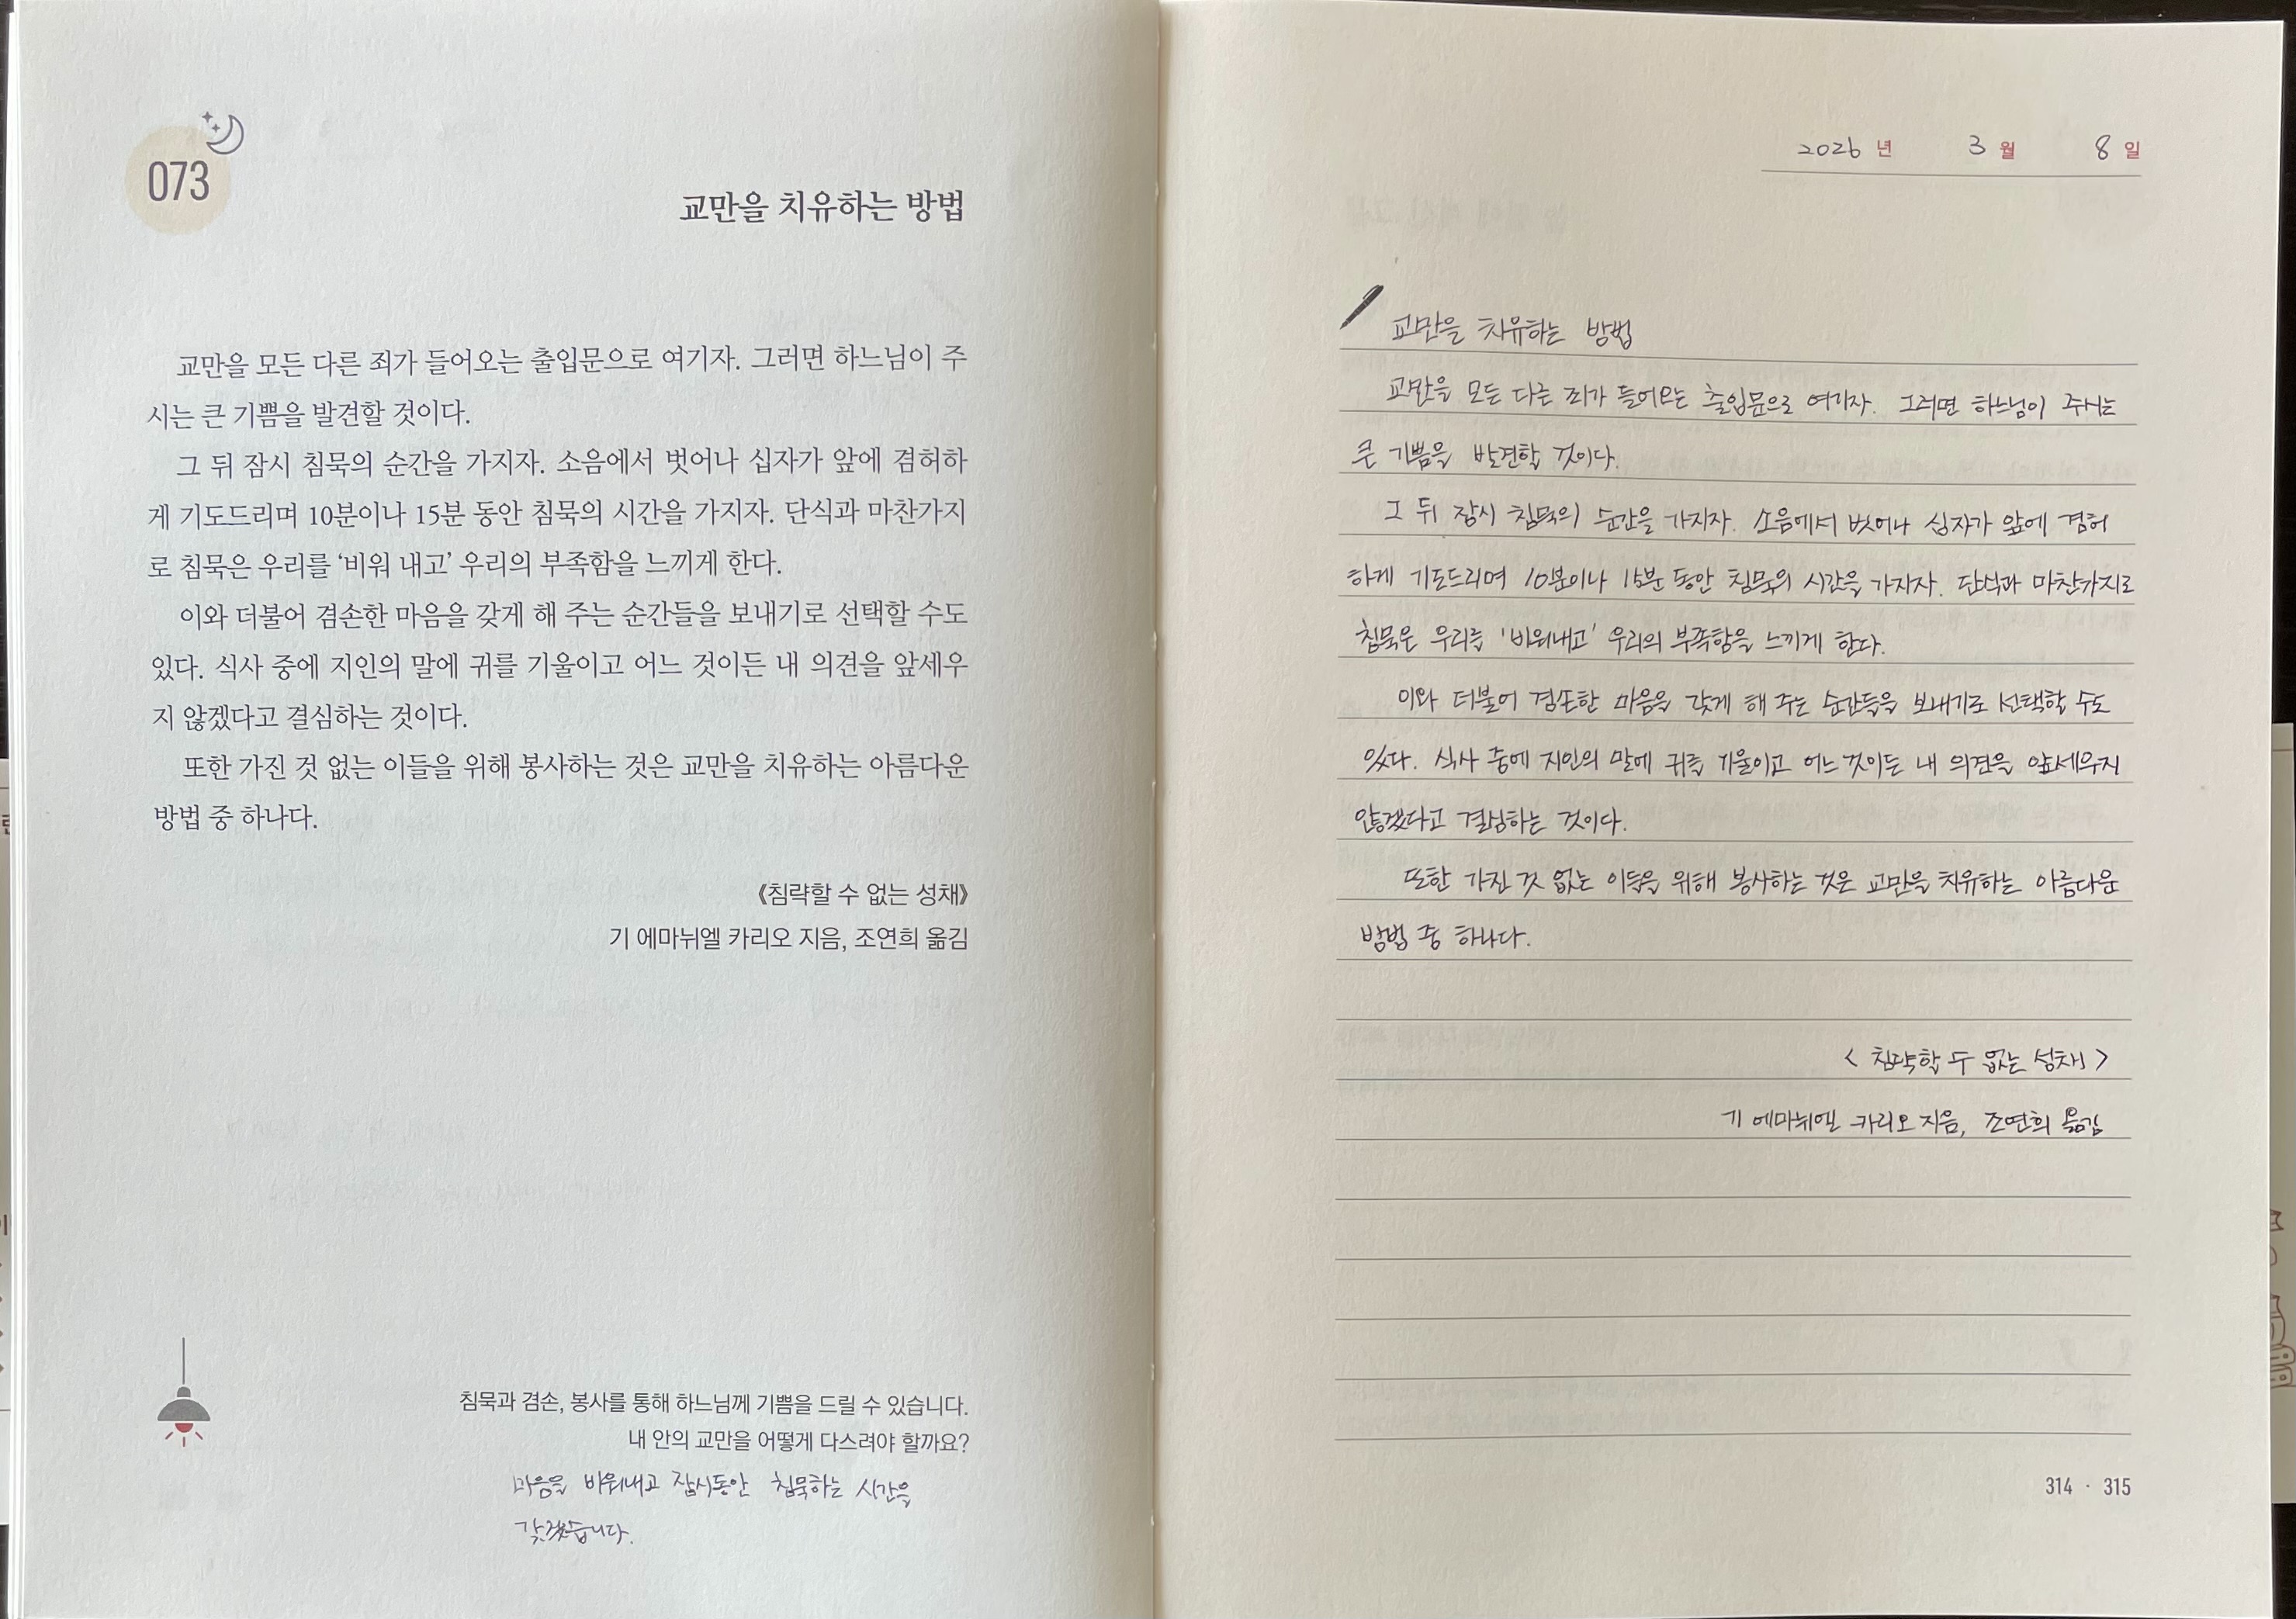 073
교만을 치유하는 방법
교만을 모든 다른 죄가 들어오는 출입문으로 여기자. 그러면 하느님이 주
시는 큰 기쁨을 발견할 것이다.
그 뒤 잠시 침묵의 순간을 가지자. 소음에서 벗어나 십자가 앞에 겸허하
게 기도드리며 10분이나 15분 동안 침묵의 시간을 가지자. 단식과 마찬가지
로 침묵은 우리를 ‘비워 내고’ 우리의 부족함을 느끼게 한다.
이와 더불어 겸손한 마음을 갖게 해 주는 순간들을 보내기로 선택할 수도
있다. 식사 중에 지인의 말에 귀를 기울이고 어느 것이든 내 의견을 앞세우
지 않겠다고 결심하는 것이다.
또한 가진 것 없는 이들을 위해 봉사하는 것은 교만을 치유하는 아름다운
방법 중 하나다.
《침략할 수 없는 성채》
기 에마뉘엘 카리오 지음, 조연희 옮김
침묵과 겸손, 봉사를 통해 하느님께 기쁨을 드릴 수 있습니다.
내 안의 교만을 어떻게 다스려야 할까요?
마음을 비워내고 잠시동안 침묵하는 시간을
갖겠습니다.
2026 년 3 월 8 일
교만을 치유하는 방법
교만을 모든 다른 죄가 들어오는 출입문으로 여기자. 그러면 하느님이 주시는
큰 기쁨을 발견할 것이다.
그 뒤 잠시 침묵의 순간을 가지자. 소음에서 벗어나 십자가 앞에 겸허
하게 기도드리며 10분이나 15분 동안 침묵의 시간을 가지자. 단식과 마찬가지로
침묵은 우리를 '비워내고' 우리의 부족함을 느끼게 한다.
이와 더불어 겸손한 마음을 갖게 해 주는 순간들을 보내기로 선택할 수도
있다. 식사 중에 지인의 말에 귀를 기울이고 어느 것이든 내 의견을 앞세우지
않겠다고 결심하는 것이다.
또한 가진 것 없는 이들을 위해 봉사하는 것은 교만을 치유하는 아름다운
방법 중 하나다.
< 침략할 수 없는 성채 >
기 에마뉘엘 카리오 지음, 조연희 옮김
314 · 315